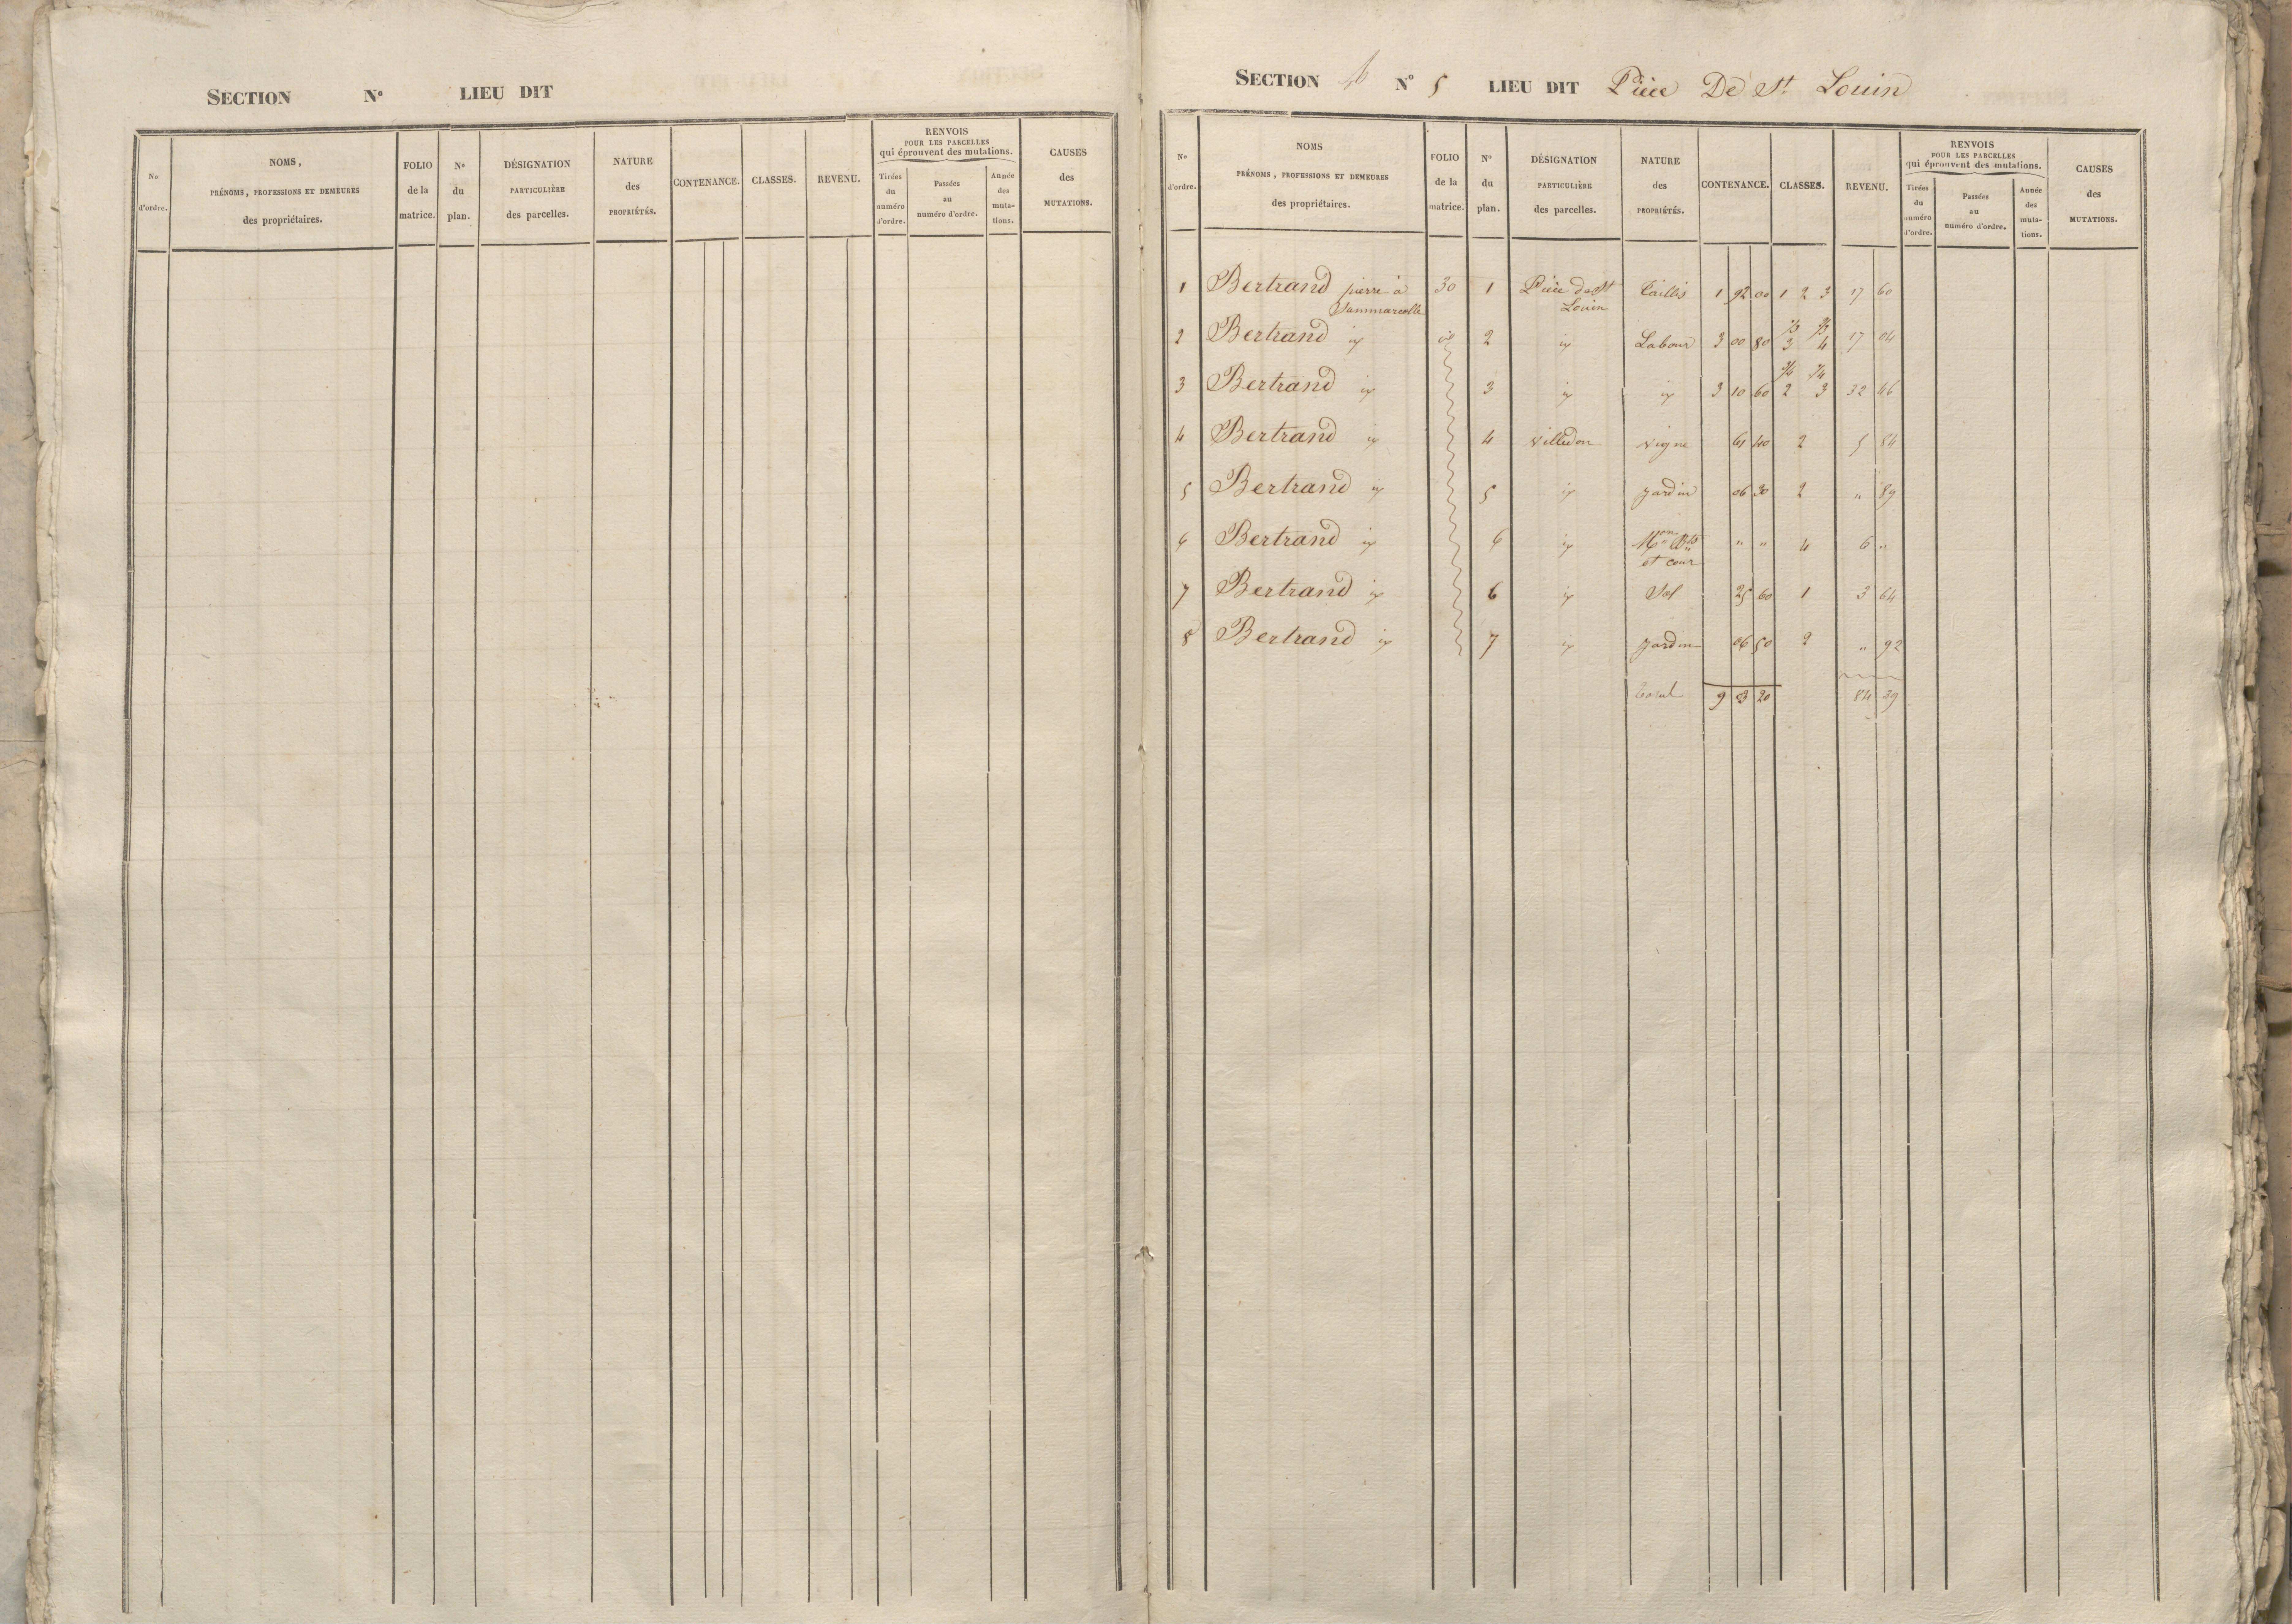 SECTION N° LIEU DIT
No d'ordre. NOMS, PRÉNOMS, PROFESSIONS ET DEMEURES des propriétaires. FOLIO de la matrice. No du plan. DÉSIGNATION PARTICULIÈRE des parcelles. NATURE des PROPRIÉTÉS. CONTENANCE. CLASSES. REVENU. RENVOIS POUR LES PARCELLES qui éprouvent des mutations. Tirées du numéro d'ordre. Passées au numéro d'ordre. Année des muta- tions. CAUSES des MUTATIONS.
SECTION N° 5 LIEU DIT Pièce De St Louin
No d'ordre. NOMS PRÉNOMS, PROFESSIONS ET DEMEURES des propriétaires. FOLIO de la matrice. N° du plan. DÉSIGNATION PARTICULIÈRE des parcelles. NATURE des PROPRIÉTÉS. CONTENANCE. CLASSES. REVENU. RENVOIS POUR LES PARCELLES qui éprouvent des mutations. Tirées du numéro d'ordre. Passées au numéro d'ordre. Année des muta- tions. CAUSES des MUTATIONS.
1 Bertrand pierre à 30 1 Pièce de St Taillis 1 92 00 1 2 3 17 60
Sammarcolle Louin
2 Bertrand id id 2 id Labour 3 00 80 3 4 17 04
3 Bertrand id 3 id id 3 10 60 2 3 32 46
4 Bertrand id 4 villedon vigne 61 40 2 5 84
5 Bertrand id 5 id jardin 06 30 2 " 89
6 Bertrand id 6 id Mon " " 4 6 "
et cour
7 Bertrand id 6 id Sol 25 60 1 3 64
8 Bertrand id 7 id jardin 06 50 2 " 92
Total 9 03 20 84 39